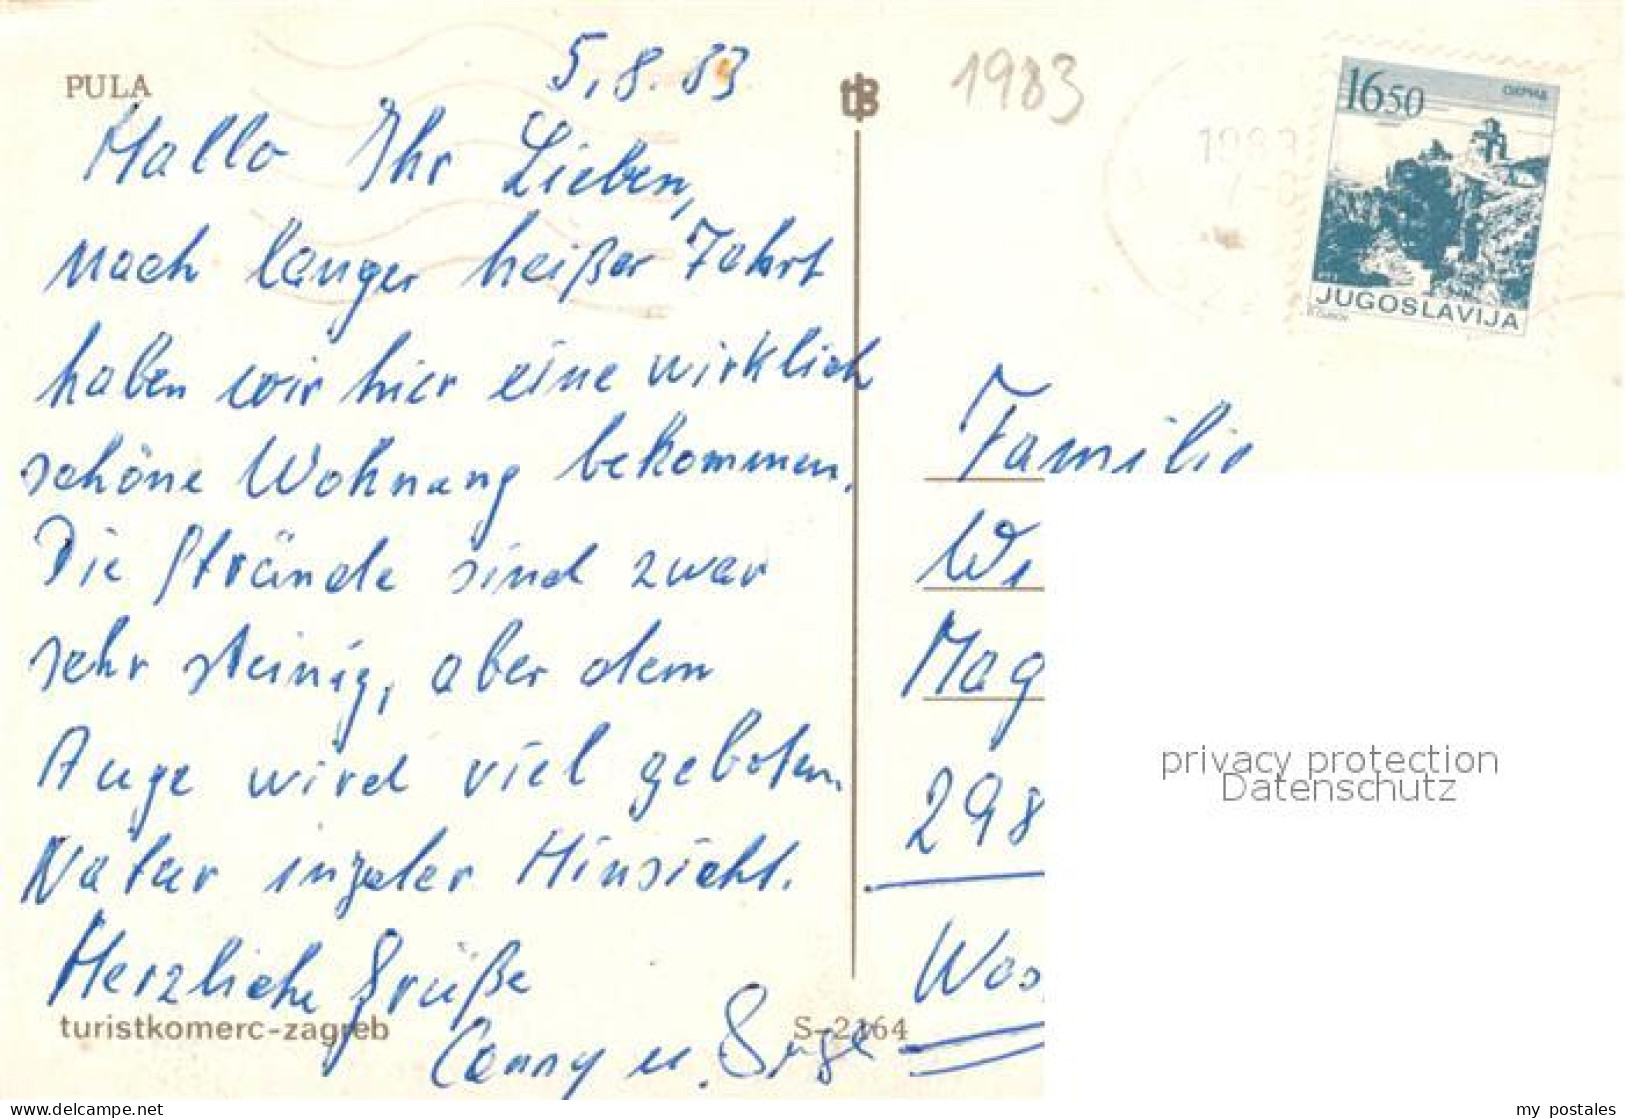 PULA
5.8.83
Hallo Ihr Lieben,
nach langer heißer Fahrt
haben wir hier eine wirklich
schöne Wohnung bekommen.
Die Strände sind zwar
sehr steinig, aber dem
Auge wird viel geboten.
Natur in jeder Hinsicht.
Herzliche Grüße
turistkomerc-zagreb
Conny u.
S-2164
1983
1650
ОХРИД
JUGOSLAVIJA
1983
Familie
We
Mag
298
Was
privacy protection
Datenschutz
www.delcampe.net
my_postales